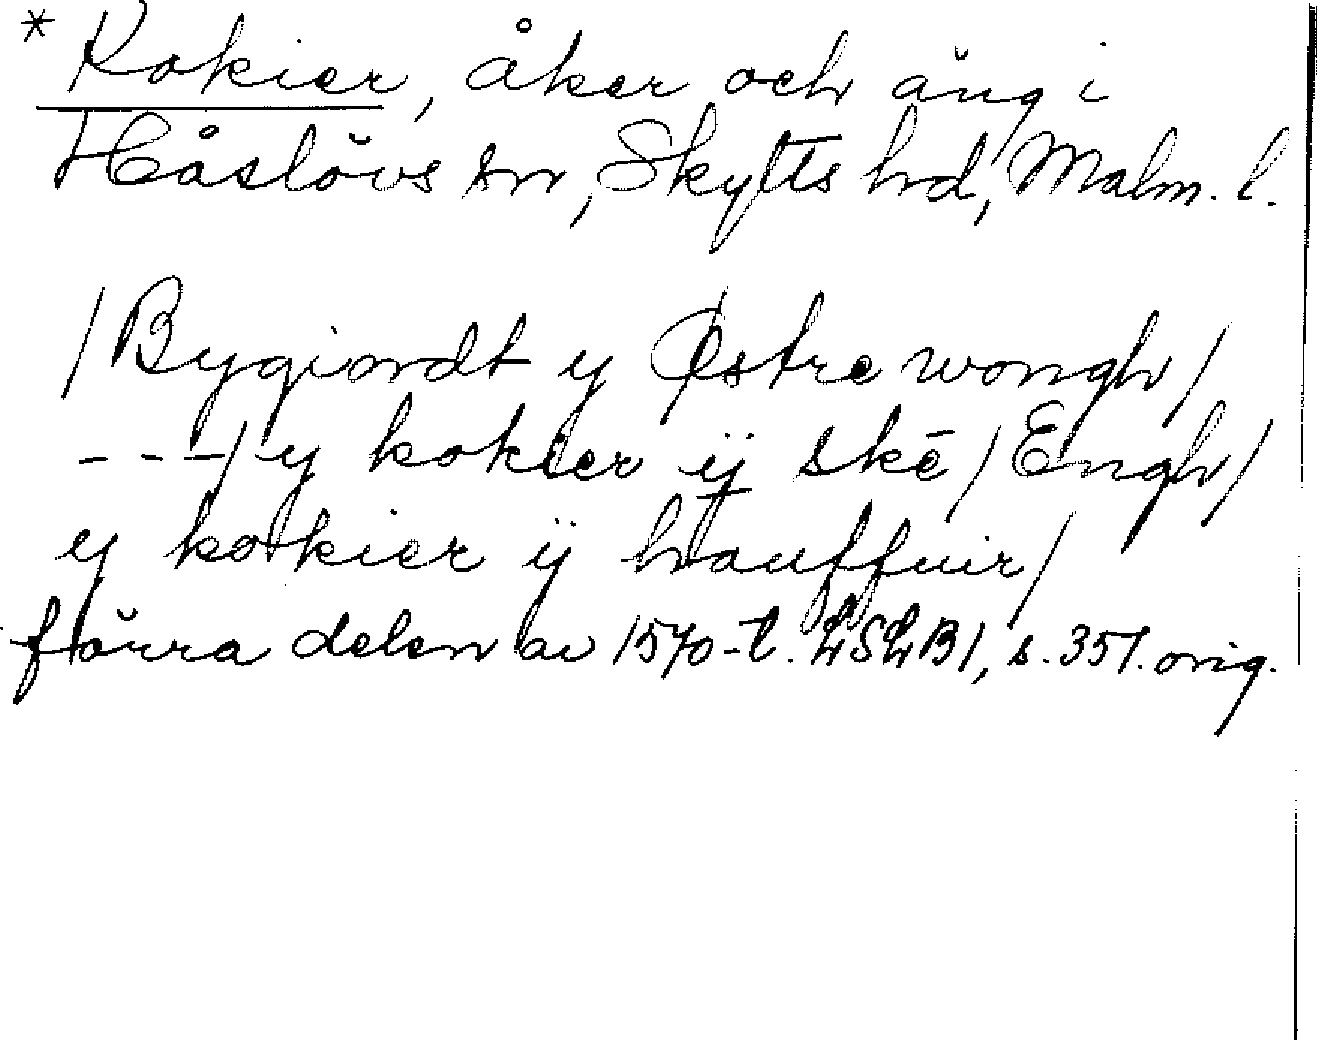 * Kokier, åker och äng i
Håslövs sn, Skytts hd, Malm. l.
/Bygiordt y Østre wongh/
---/ y kokier ÿ skē / Engh/
y kokier ÿ hauffuir/
förra delen av 1570-t. LSLB1, s. 351. orig.